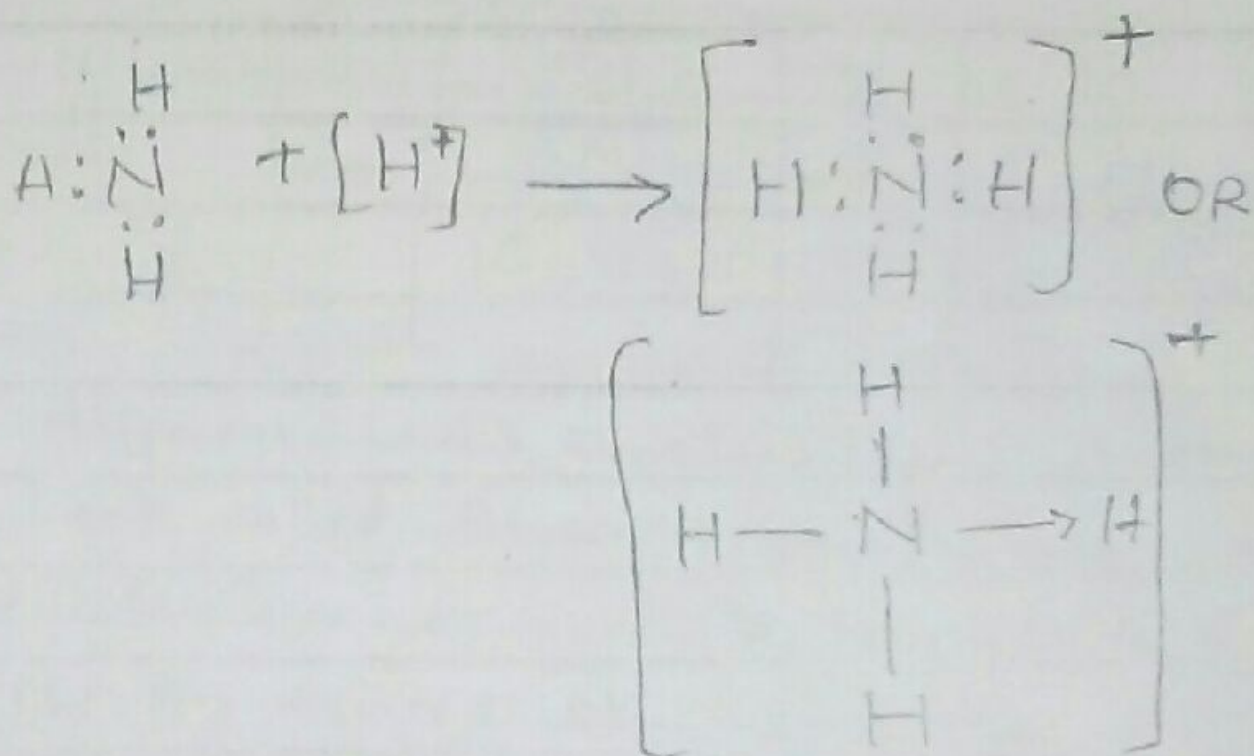 H
A:N̈ + [H⁺] ⟶ [H:N̈:H]⁺ OR
H
H
H
[H
|
H — N ⟶ H]⁺
|
H